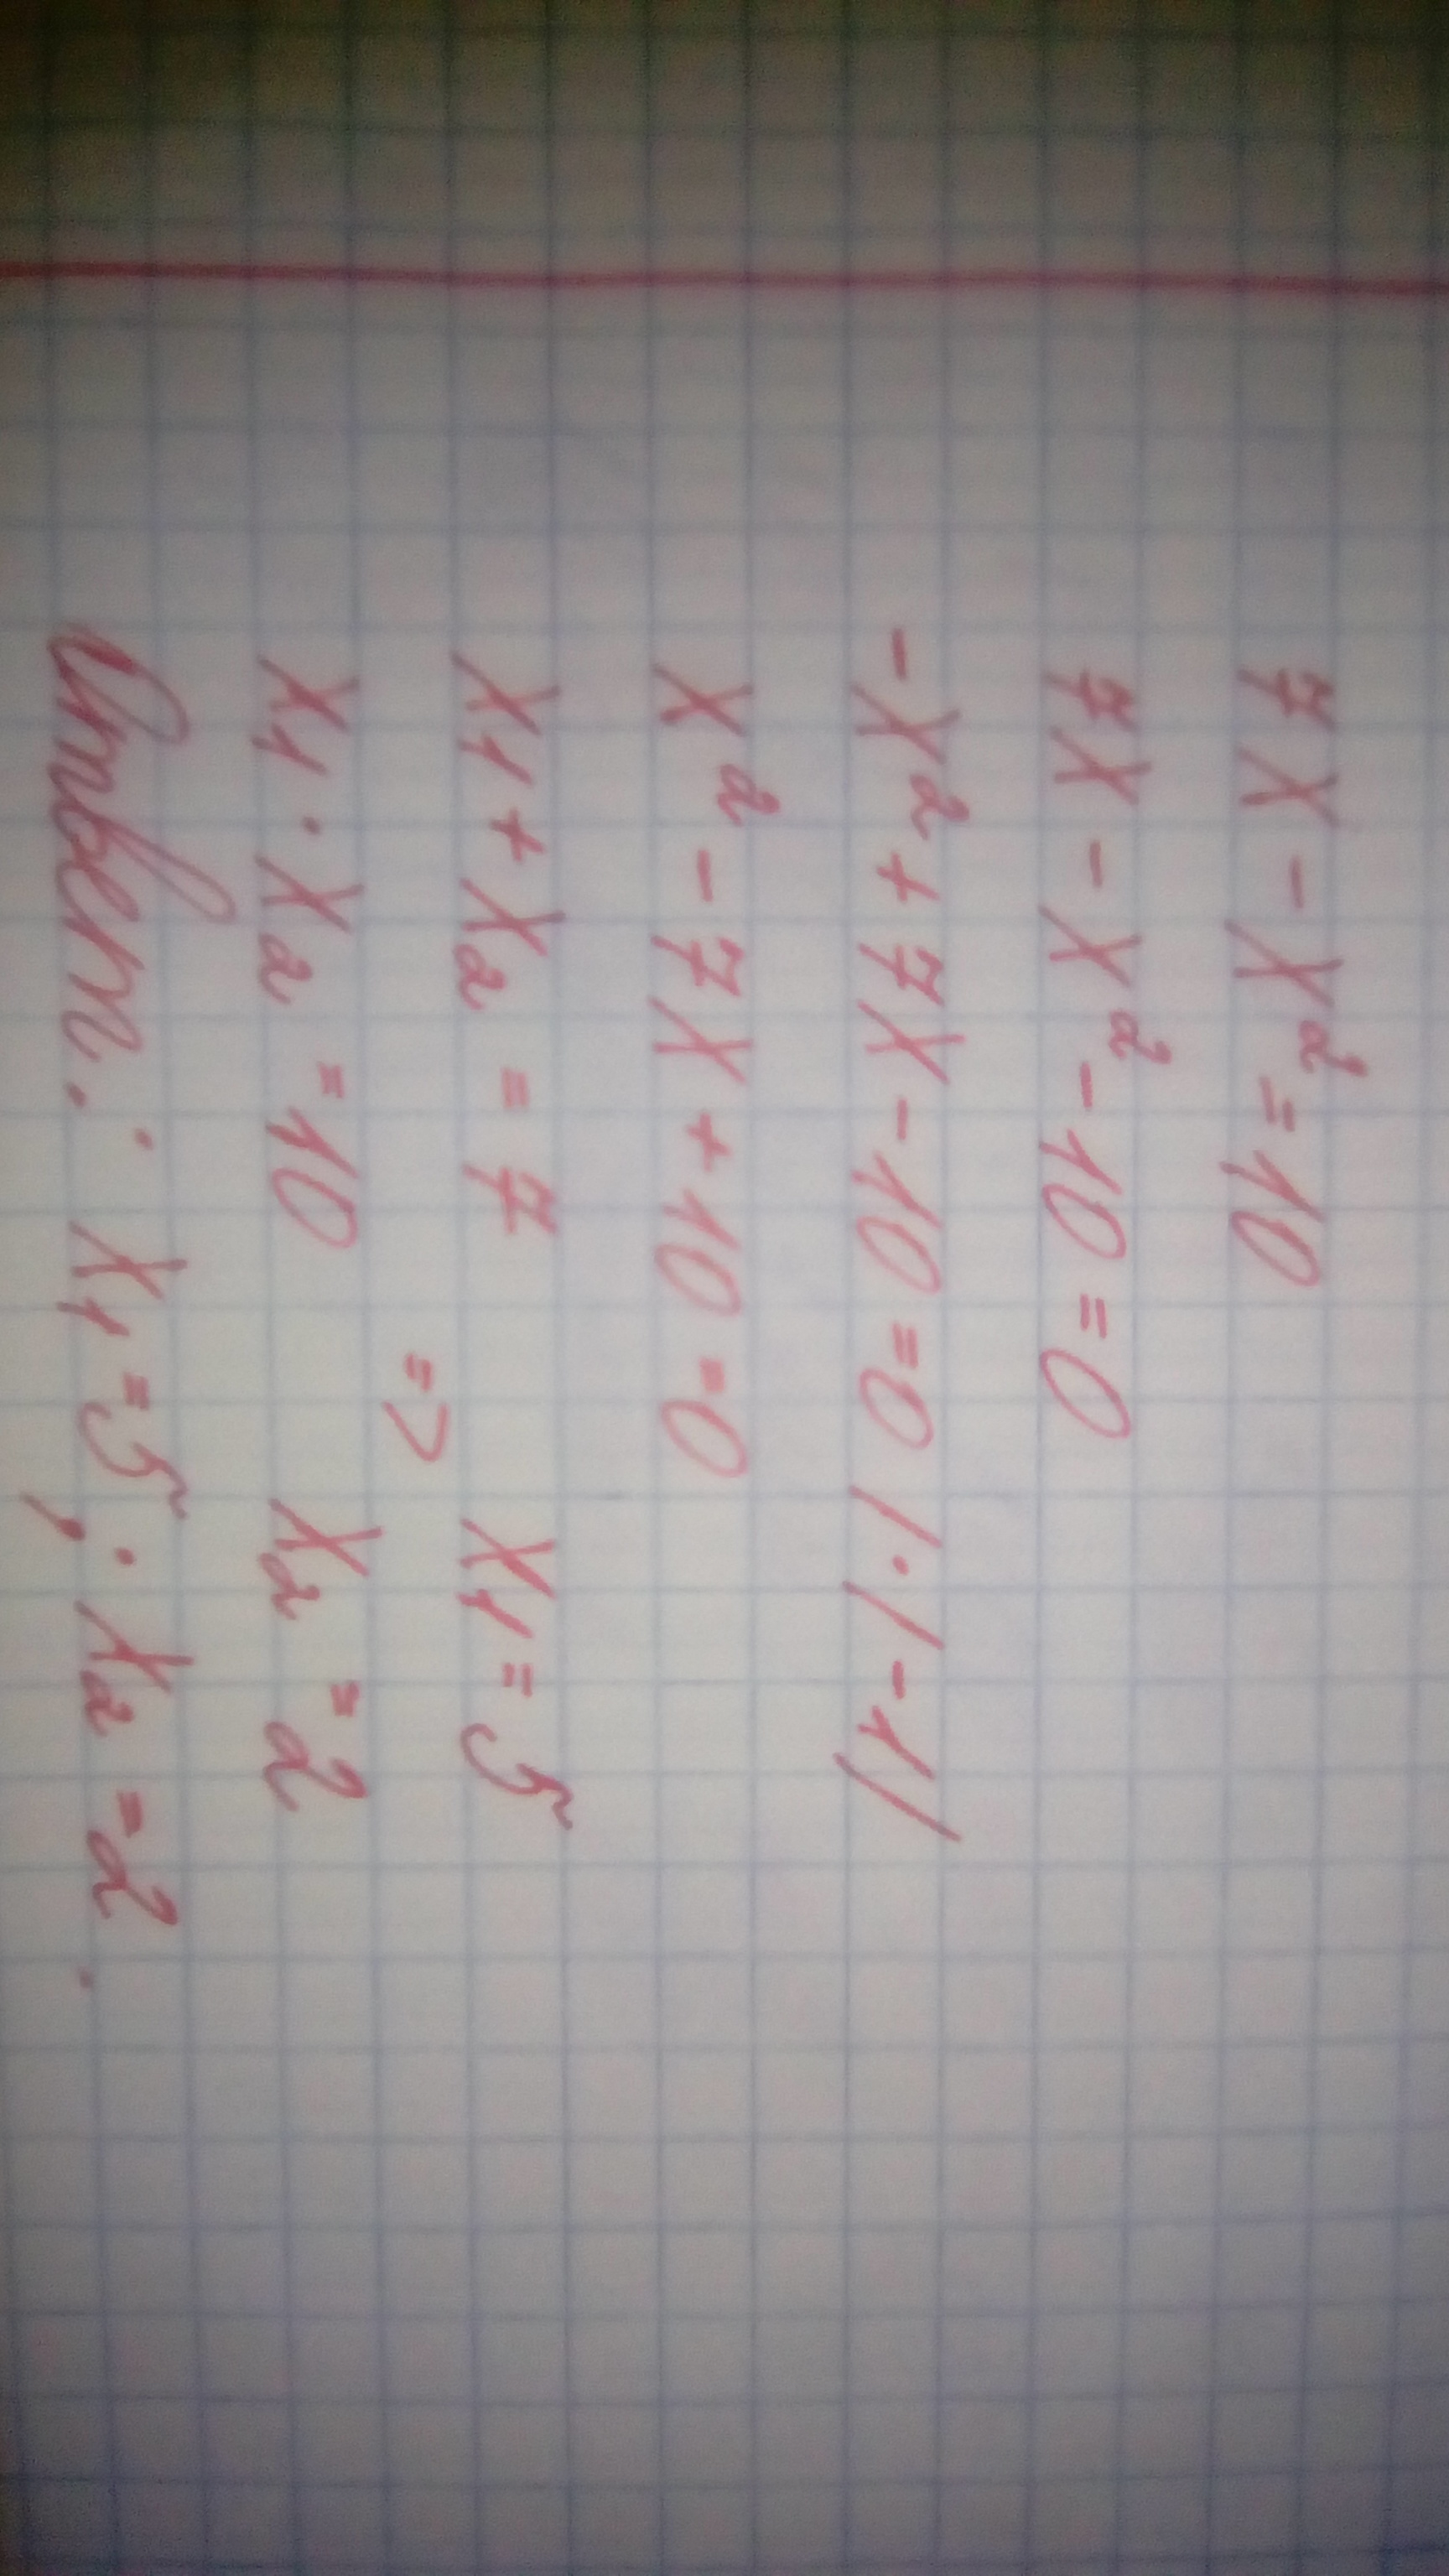 7x - x² = 10
7x - x² - 10 = 0
-x² + 7x - 10 = 0 | · (-1)
x² - 7x + 10 = 0
x₁ + x₂ = 7 x₁ = 5
=>
x₁ · x₂ = 10 x₂ = 2
Ответ: x₁ = 5; x₂ = 2.